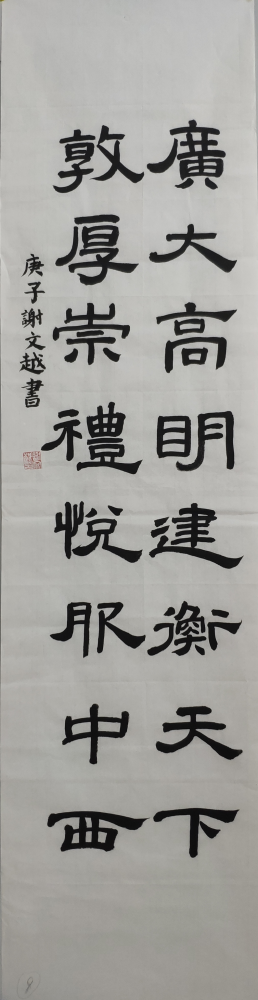 廣大高明建衡天下
敦厚崇禮悅服中西
庚子謝文越書